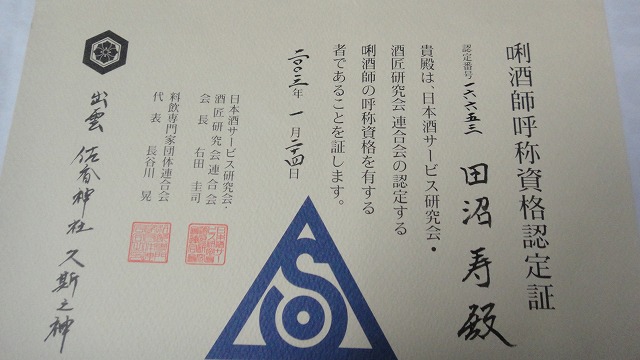 唎酒師呼称資格認定証
認定番号 一六六五三
田沼 寿 殿
貴殿は、日本酒サービス研究会・
酒匠研究会連合会の認定する
唎酒師の呼称資格を有する
者であることを証します。
二〇〇三年 一月二十四日
日本酒サービス研究会・
酒匠研究会連合会
会長 右田 圭司
料飲専門家団体連合会
代表 長谷川 晃
出雲 佐香神社 久斯之神